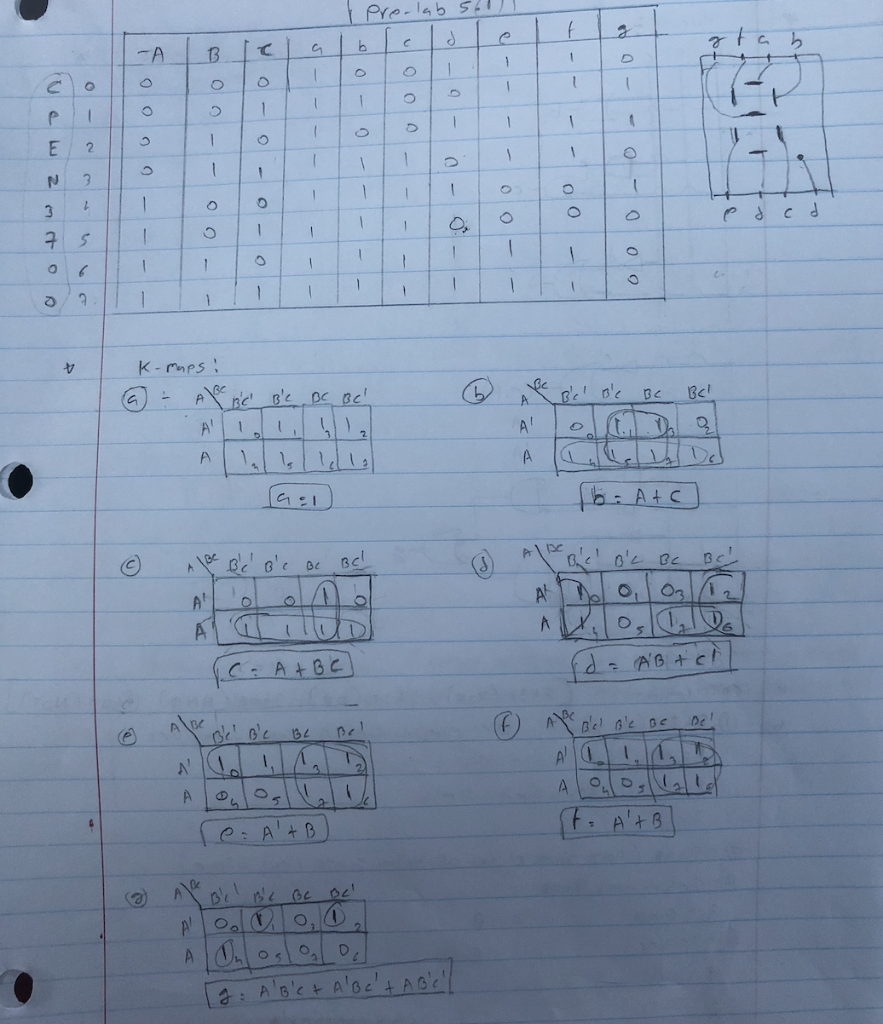 Pre-lab
A B C a b c d e f g
C 0 0 0 0 1 0 0 1 1 1 0
P 1 0 0 1 1 1 0 0 1 1 1
E 2 0 1 0 1 0 0 1 1 1 1
N 3 0 1 1 1 1 1 0 1 1 0
3 4 1 0 0 1 1 1 1 0 0 1
7 5 1 0 1 1 1 1 0 0 0 0
0 6 1 1 0 1 1 1 1 1 1 0
0 7 1 1 1 1 1 1 1 1 1 0
g f a b
e d c d
K-maps:
a
A BC B'C' B'C BC BC'
A' 1 0 1 1 1 3 1 2
A 1 4 1 5 1 6 1 7
a = 1
b
A BC B'C' B'C BC BC'
A' 0 0 1 1 1 3 0 2
A 1 4 1 5 1 7 1 6
b = A + C
c
A BC B'C' B'C BC BC'
A' 0 0 1 0
A 1 1 1 1
C = A + BC
d
A BC B'C' B'C BC BC'
A' 1 0 0 1 0 3 1 2
A 1 4 0 5 1 7 1 6
d = AB + C'
e
A BC B'C' B'C BC BC'
A' 1 0 1 1 1 3 1 2
A 0 4 0 5 1 7 1 6
e = A' + B
f
A BC B'C' B'C BC BC'
A' 1 0 1 1 1 3 1 2
A 0 4 0 5 1 7 1 6
f = A' + B
g
A BC B'C' B'C BC BC'
A' 0 0 1 1 0 3 1 2
A 1 4 0 5 0 7 0 6
g = A'B'C + A'BC' + AB'C'